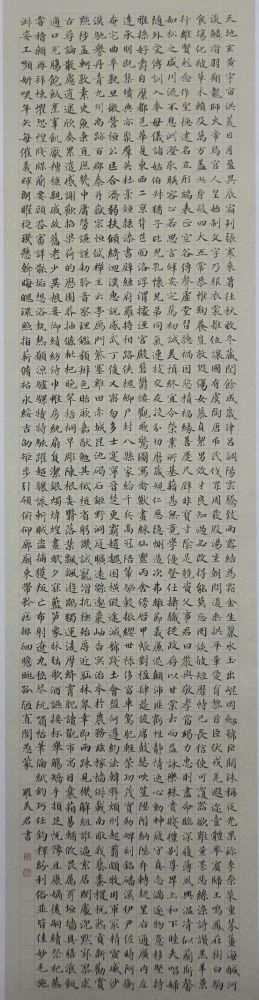 天地玄黃宇宙洪荒日月盈昃辰宿列張寒來暑往秋收冬藏閏餘成歲律呂調陽雲騰致雨露結為霜金生麗水玉出崑岡劍號巨闕珠稱夜光果珍李柰菜重芥薑海鹹河
淡鱗潛羽翔龍師火帝鳥官人皇始制文字乃服衣裳推位讓國有虞陶唐弔民伐罪周發殷湯坐朝問道垂拱平章愛育黎首臣伏戎羌遐邇壹體率賓歸王鳴鳳在樹白駒
食場化被草木賴及萬方蓋此身髮四大五常恭惟鞠養豈敢毀傷女慕貞潔男效才良知過必改得能莫忘罔談彼短靡恃己長信使可覆器欲難量墨悲絲染詩讚羔羊景
行維賢克念作聖德建名立形端表正空谷傳聲虛堂習聽禍因惡積福緣善慶尺璧非寶寸陰是競資父事君曰嚴與敬孝當竭力忠則盡命臨深履薄夙興溫凊似蘭斯馨
如松之盛川流不息淵澄取映容止若思言辭安定篤初誠美慎終宜令榮業所基籍甚無竟學優登仕攝職從政存以甘棠去而益詠樂殊貴賤禮別尊卑上和下睦夫唱婦
隨外受傅訓入奉母儀諸姑伯叔猶子比兒孔懷兄弟同氣連枝交友投分切磨箴規仁慈隱惻造次弗離節義廉退顛沛匪虧性靜情逸心動神疲守真志滿逐物意移堅持
雅操好爵自縻都邑華夏東西二京背邙面洛浮渭據涇宮殿盤鬱樓觀飛驚圖寫禽獸畫綵仙靈丙舍傍啟甲帳對楹肆筵設席鼓瑟吹笙陞階納陛弁轉疑星右通廣內左
達承明既集墳典亦聚群英杜稾鍾隸漆書壁經府羅將相路俠槐卿戶封八縣家給千兵高冠陪輦驅轂振纓世祿侈富車駕肥輕策功茂實勒碑刻銘磻溪伊尹佐時阿衡
奄宅曲阜微旦孰營桓公匡合濟弱扶傾綺迴漢惠說感武丁俊乂密勿多士寔寧晉楚更霸趙魏困橫假途滅虢踐土會盟何遵約法韓弊煩刑起翦頗牧用軍最精宣威沙
漠馳譽丹青九州禹跡百郡秦并嶽宗恆岱禪主云亭雁門紫塞雞田赤城昆池碣石鉅野洞庭曠遠綿邈巖岫杳冥治本於農務茲稼穡俶載南畝我藝黍稷稅熟貢新勸賞
黜陟孟軻敦素史魚秉直庶幾中庸勞謙謹敕聆音察理鑑貌辨色貽厥嘉猷勉其祗植省躬譏誡寵增抗極殆辱近恥林皋幸即兩疏見機解組誰逼索居閒處沉默寂寥求
古尋論散慮逍遙欣奏累遣慼謝歡招渠荷的歷園莽抽條枇杷晚翠梧桐早凋陳根委翳落葉飄颻遊鵾獨運凌摩絳霄耽讀翫市寓目囊箱易輶攸畏屬耳垣牆具膳餐飯
適口充腸飽飫烹宰飢厭糟糠親戚故舊老少異糧妾御績紡侍巾帷房紈扇圓潔銀燭煒煌晝眠夕寐藍筍象床絃歌酒讌接杯舉觴矯手頓足悅豫且康嫡後嗣續祭祀烝
嘗稽顙再拜悚懼恐惶牋牒簡要顧答審詳骸垢想浴執熱願涼驢騾犢特駭躍超驤誅斬賊盜捕獲叛亡布射遼丸嵇琴阮嘯恬筆倫紙鈞巧任釣釋紛利俗並皆佳妙毛施
淑姿工顰妍笑年矢每催曦暉朗曜璇璣懸斡晦魄環照指薪修祜永綏吉劭矩步引領俯仰廊廟束帶矜莊徘徊瞻眺孤陋寡聞愚蒙 君書